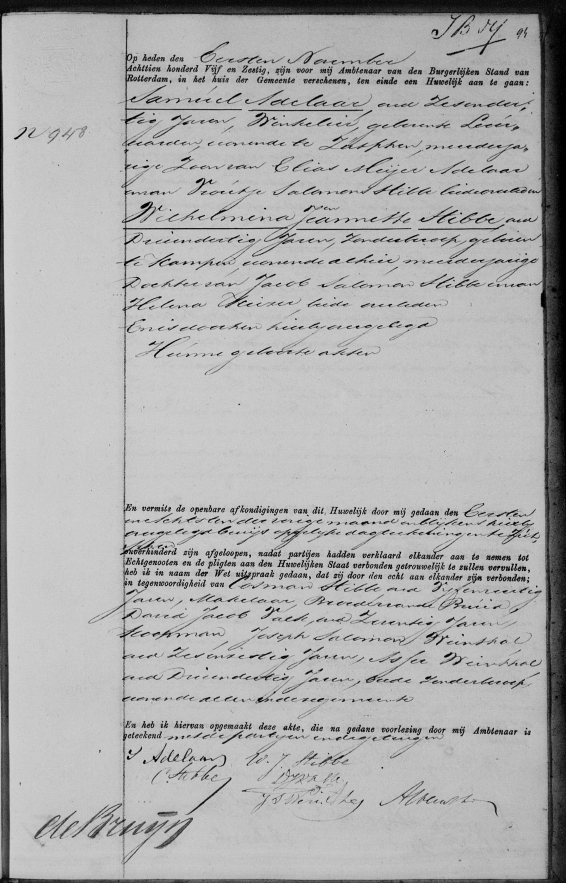 94
Op heden den Eersten November
Achttien honderd Vijf en Zestig, zijn voor mij Ambtenaar van den Burgerlijken Stand van
Rotterdam, in het huis der Gemeente verschenen, ten einde een Huwelijk aan te gaan:
Samuel Adelaar, oud Zesender-
tig Jaren, Winkelier, geboren te Leeu-
N 948
warden, wonende te Zutphen, meerderja-
rige Zoon van Elias Meijer Adelaar
en van Vrouktje Salomon Stibbe beide overleden
en
Wilhelmina Jeannette Stibbe, oud
Drieendertig Jaren, Zonder beroep, geboren
te Kampen wonende alhier, meerderjarige
Dochter van Jacob Salomon Stibbe en van
Helena Keizer, beide overleden
En is door hen hierbij overgelegd
Hunne geboorte akten
En vermits de openbare afkondigingen van dit Huwelijk door mij gedaan den Eersten
en achtsten der vorige maand en blijkens hierbij
overgelegd bewijs op gelijke dagteekeningen te Zut-
phen
onverhinderd zijn afgeloopen, nadat partijen hadden verklaard elkander aan te nemen tot
Echtgenooten en de pligten aan den Huwelijken Staat verbonden getrouwelijk te zullen vervullen,
heb ik in naam der Wet uitspraak gedaan, dat zij door den echt aan elkander zijn verbonden;
in tegenwoordigheid van Stibbe oud Vijfenveertig
Jaren, Makelaar, Broeder van de Bruid
David Jacob Valk oud Zeventig Jaren,
Koopman, Joseph Salomon Weinthal
oud Zesenzestig Jaren, Asser Weinthal
oud Drieendertig Jaren, beide Zonder beroep,
wonende allen in deze gemeente
En heb ik hiervan opgemaakt deze akte, die na gedane voorlezing door mij Ambtenaar is
geteekend met de partijen en de getuigen
S Adelaar W. J. Stibbe
C Stibbe D J Valk
J S Weinthal A Weinthal
de Bruyn